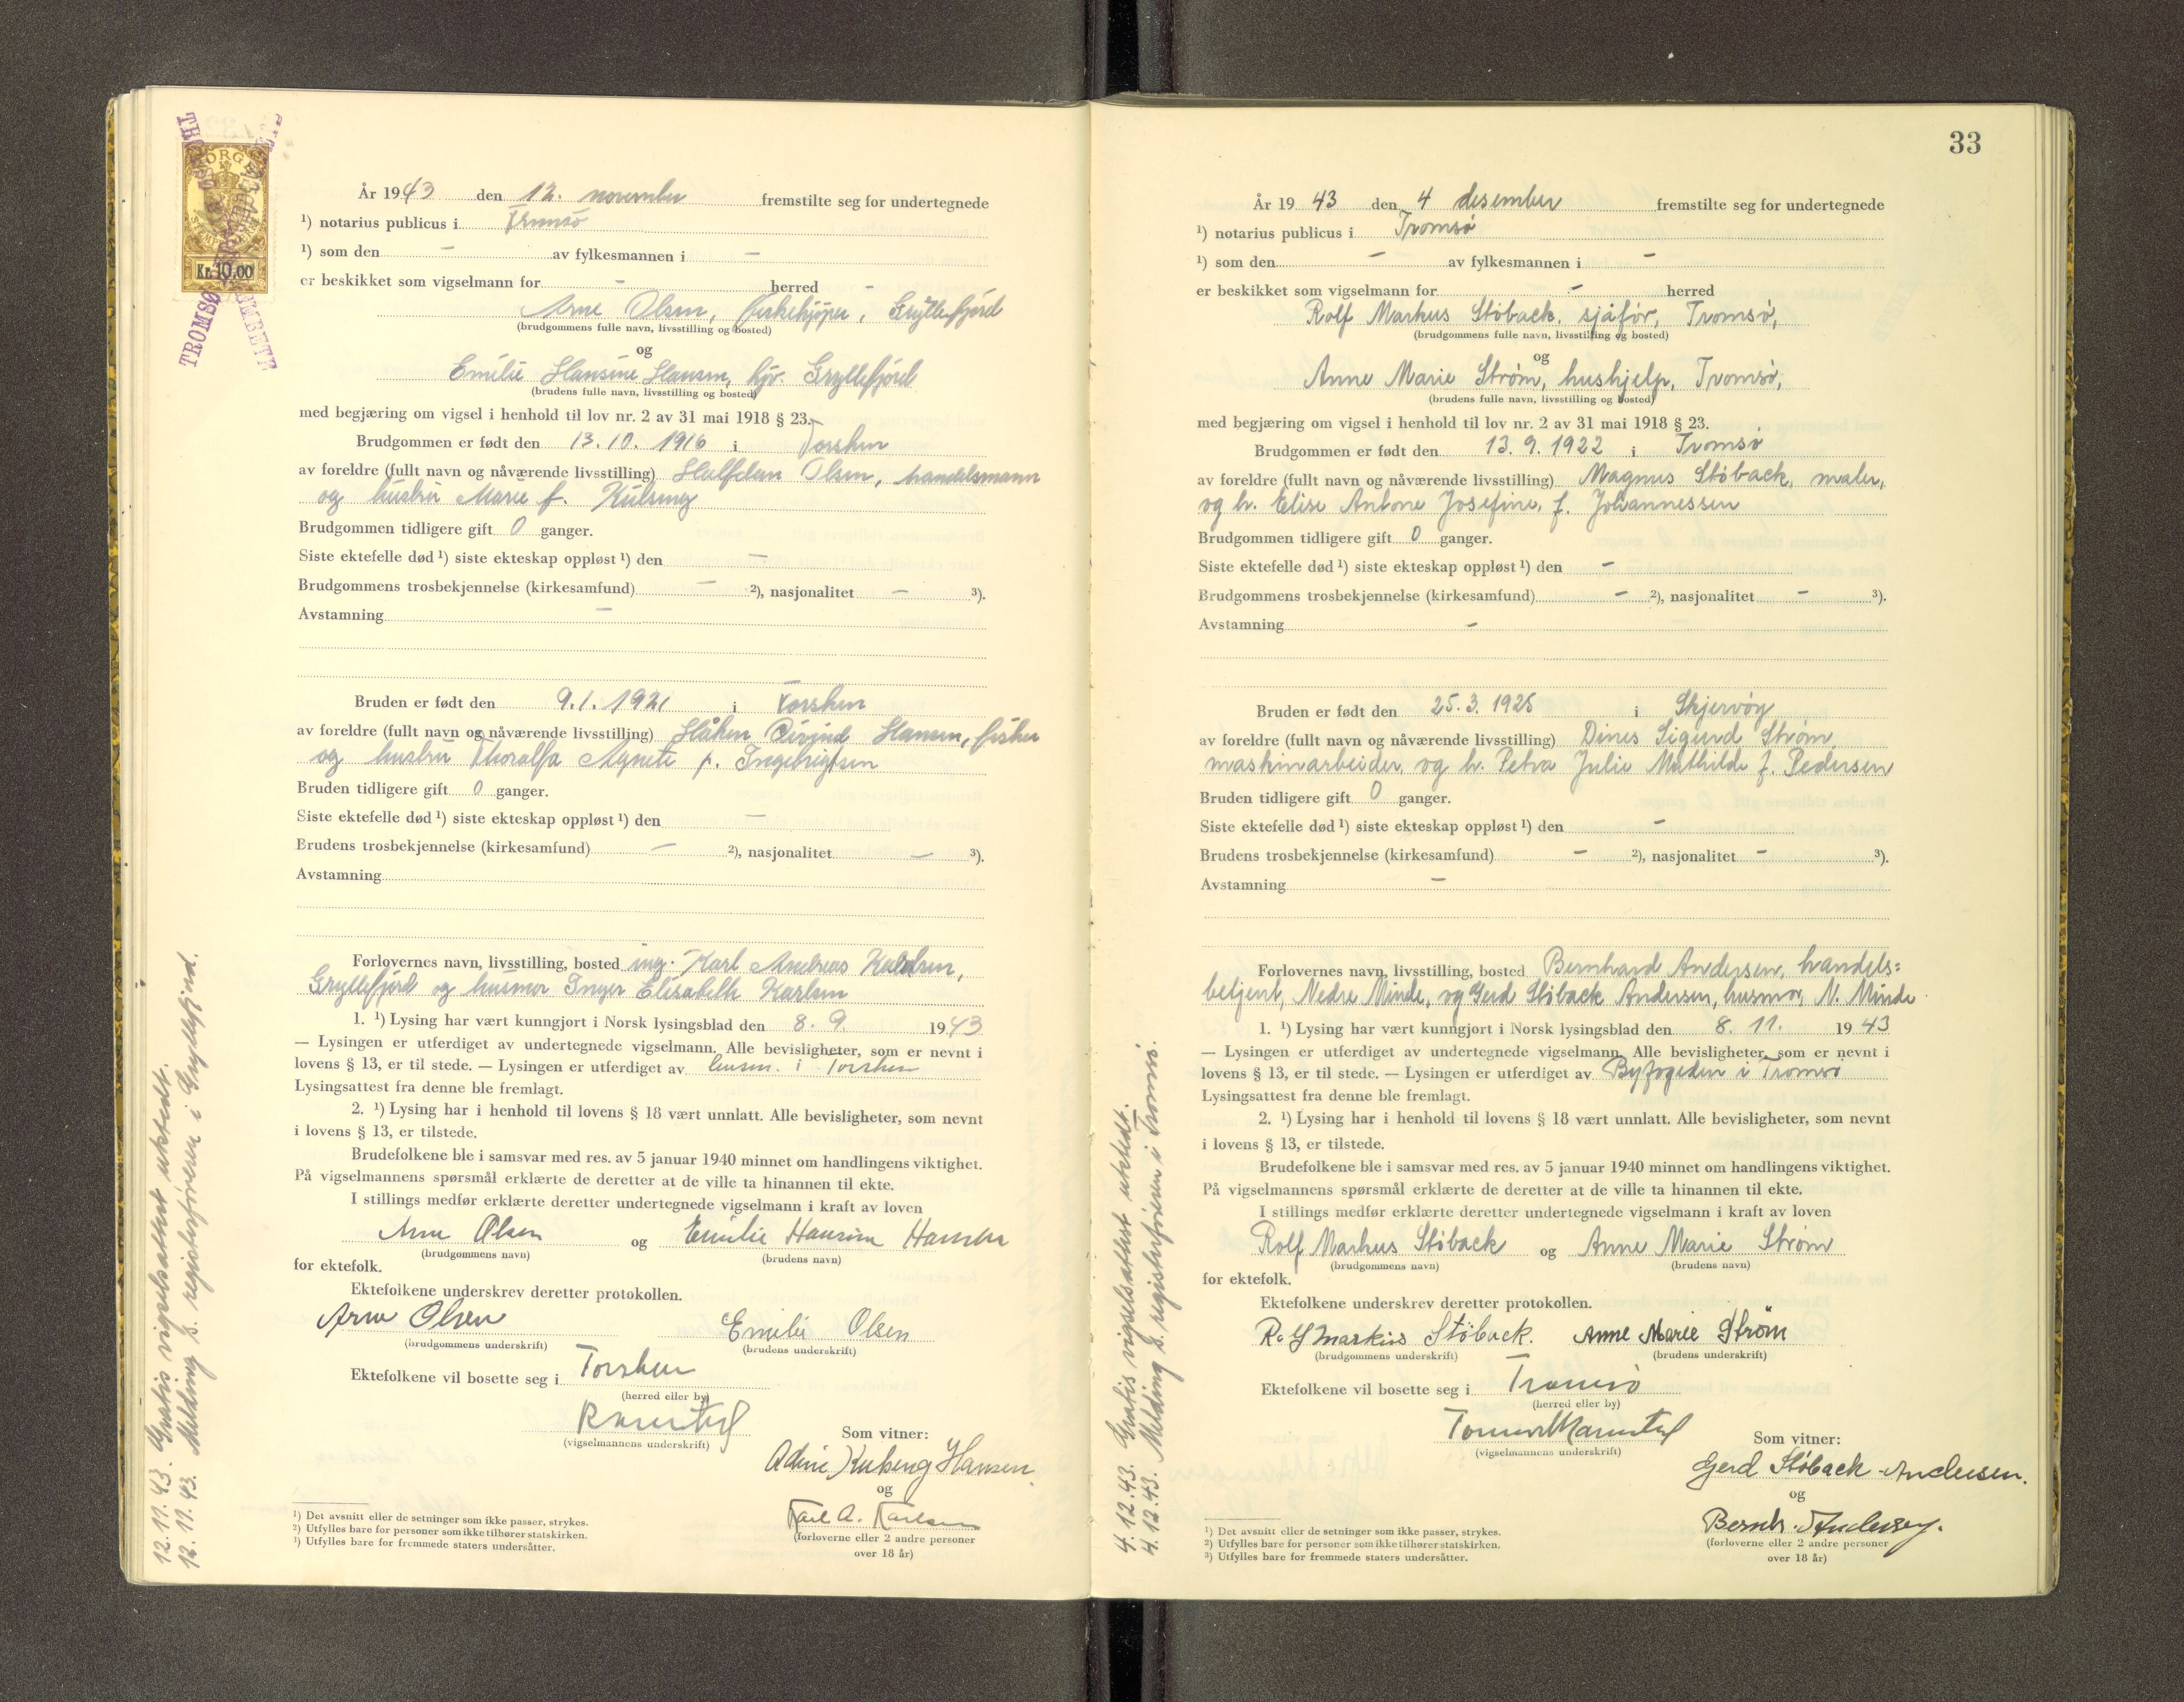 NORGE
Kr. 10.00
TROMSØ
År 1943 den 12. november fremstilte seg for undertegnede
¹) notarius publicus i Tromsø
¹) som den - av fylkesmannen i -
er beskikket som vigselmann for - herred -
Arne Olsen, fiskekjøper, Gryllefjord
(brudgommens fulle navn, livsstilling og bosted)
og
Emilie Hansine Hansen, hjv. Gryllefjord
(brudens fulle navn, livsstilling og bosted)
med begjæring om vigsel i henhold til lov nr. 2 av 31 mai 1918 § 23.
Brudgommen er født den 13.10.1916 i Torsken
av foreldre (fullt navn og nåværende livsstilling) Halfdan Olsen, handelsmann
og hustru Marie f. Kulseng
Brudgommen tidligere gift 0 ganger.
Siste ektefelle død ¹) siste ekteskap oppløst ¹) den -
Brudgommens trosbekjennelse (kirkesamfund) - ²), nasjonalitet - ³).
Avstamning -
Bruden er født den 9.1.1921 i Torsken
av foreldre (fullt navn og nåværende livsstilling) Håkon Eivind Hansen, fisker
og hustru Thoralfa Agnete f. Ingebrigtsen
Bruden tidligere gift 0 ganger.
Siste ektefelle død ¹) siste ekteskap oppløst ¹) den -
Brudens trosbekjennelse (kirkesamfund) - ²), nasjonalitet - ³).
Avstamning
Forlovernes navn, livsstilling, bosted ing. Karl Andreas Karlsen,
Gryllefjord og husmor Inger Elisabeth Karlsen
1. ¹) Lysing har vært kunngjort i Norsk lysingsblad den 8. 9. 1943
— Lysingen er utferdiget av undertegnede vigselmann. Alle bevisligheter, som er nevnt i
lovens § 13, er til stede. — Lysingen er utferdiget av lensm. i Torsken
Lysingsattest fra denne ble fremlagt.
2. ¹) Lysing har i henhold til lovens § 18 vært unnlatt. Alle bevisligheter, som nevnt
i lovens § 13, er tilstede.
Brudefolkene ble i samsvar med res. av 5 januar 1940 minnet om handlingens viktighet.
På vigselmannens spørsmål erklærte de deretter at de ville ta hinannen til ekte.
I stillings medfør erklærte deretter undertegnede vigselmann i kraft av loven
Arne Olsen og Emilie Hansine Hansen
(brudgommens navn) (brudens navn)
for ektefolk.
Ektefolkene underskrev deretter protokollen.
Arne Olsen Emilie Olsen
(brudgommens underskrift) (brudens underskrift)
Ektefolkene vil bosette seg i Torsken
(herred eller by)
(vigselmannens underskrift)
Som vitner:
Adine Kulseng Hansen
og
Karl A. Karlsen
(forloverne eller 2 andre personer
over 18 år)
¹) Det avsnitt eller de setninger som ikke passer, strykes.
²) Utfylles bare for personer som ikke tilhører statskirken.
³) Utfylles bare for fremmede staters undersåtter.
12.11.43. Gratis vigselsattest utstedt.
12.11.43. Melding s. registerføreren i Gryllefjord.
33
År 1943 den 4 desember fremstilte seg for undertegnede
¹) notarius publicus i Tromsø
¹) som den - av fylkesmannen i -
er beskikket som vigselmann for - herred
Rolf Markus Støback, sjåfør, Tromsø,
(brudgommens fulle navn, livsstilling og bosted)
og
Anne Marie Strøm, hushjelp, Tromsø,
(brudens fulle navn, livsstilling og bosted)
med begjæring om vigsel i henhold til lov nr. 2 av 31 mai 1918 § 23.
Brudgommen er født den 13.9.1922 i Tromsø
av foreldre (fullt navn og nåværende livsstilling) Magnus Støback, maler,
og h. Elise Antone Josefine, f. Johannessen
Brudgommen tidligere gift 0 ganger.
Siste ektefelle død ¹) siste ekteskap oppløst ¹) den -
Brudgommens trosbekjennelse (kirkesamfund) - ²), nasjonalitet - ³).
Avstamning -
Bruden er født den 25.3.1925 i Skjervøy
av foreldre (fullt navn og nåværende livsstilling) Dines Sigurd Strøm,
maskinarbeider, og h. Petra Julie Mathilde f. Pedersen
Bruden tidligere gift 0 ganger.
Siste ektefelle død ¹) siste ekteskap oppløst ¹) den -
Brudens trosbekjennelse (kirkesamfund) - ²), nasjonalitet - ³).
Avstamning -
Forlovernes navn, livsstilling, bosted Bernhard Andersen, handels=
betjent, Nedre Minde, og Gerd Støback Andersen, husmor, N. Minde
1. ¹) Lysing har vært kunngjort i Norsk lysingsblad den 8. 11. 1943
— Lysingen er utferdiget av undertegnede vigselmann. Alle bevisligheter, som er nevnt i
lovens § 13, er til stede. — Lysingen er utferdiget av Byfogeden i Tromsø
Lysingsattest fra denne ble fremlagt.
2. ¹) Lysing har i henhold til lovens § 18 vært unnlatt. Alle bevisligheter, som nevnt
i lovens § 13, er tilstede.
Brudefolkene ble i samsvar med res. av 5 januar 1940 minnet om handlingens viktighet.
På vigselmannens spørsmål erklærte de deretter at de ville ta hinannen til ekte.
I stillings medfør erklærte deretter undertegnede vigselmann i kraft av loven
Rolf Markus Støback og Anne Marie Strøm
(brudgommens navn) (brudens navn)
for ektefolk.
Ektefolkene underskrev deretter protokollen.
Rolf Markus Støback. Anne Marie Strøm
(brudgommens underskrift) (brudens underskrift)
Ektefolkene vil bosette seg i Tromsø
(herred eller by)
(vigselmannens underskrift)
Som vitner:
Gerd Støback Andersen.
og
Bernh. Andersen.
(forloverne eller 2 andre personer
over 18 år)
¹) Det avsnitt eller de setninger som ikke passer, strykes.
²) Utfylles bare for personer som ikke tilhører statskirken.
³) Utfylles bare for fremmede staters undersåtter.
4.12.43. Gratis vigselsattest utstedt.
4.12.43. Melding s. registerføreren i Tromsø.